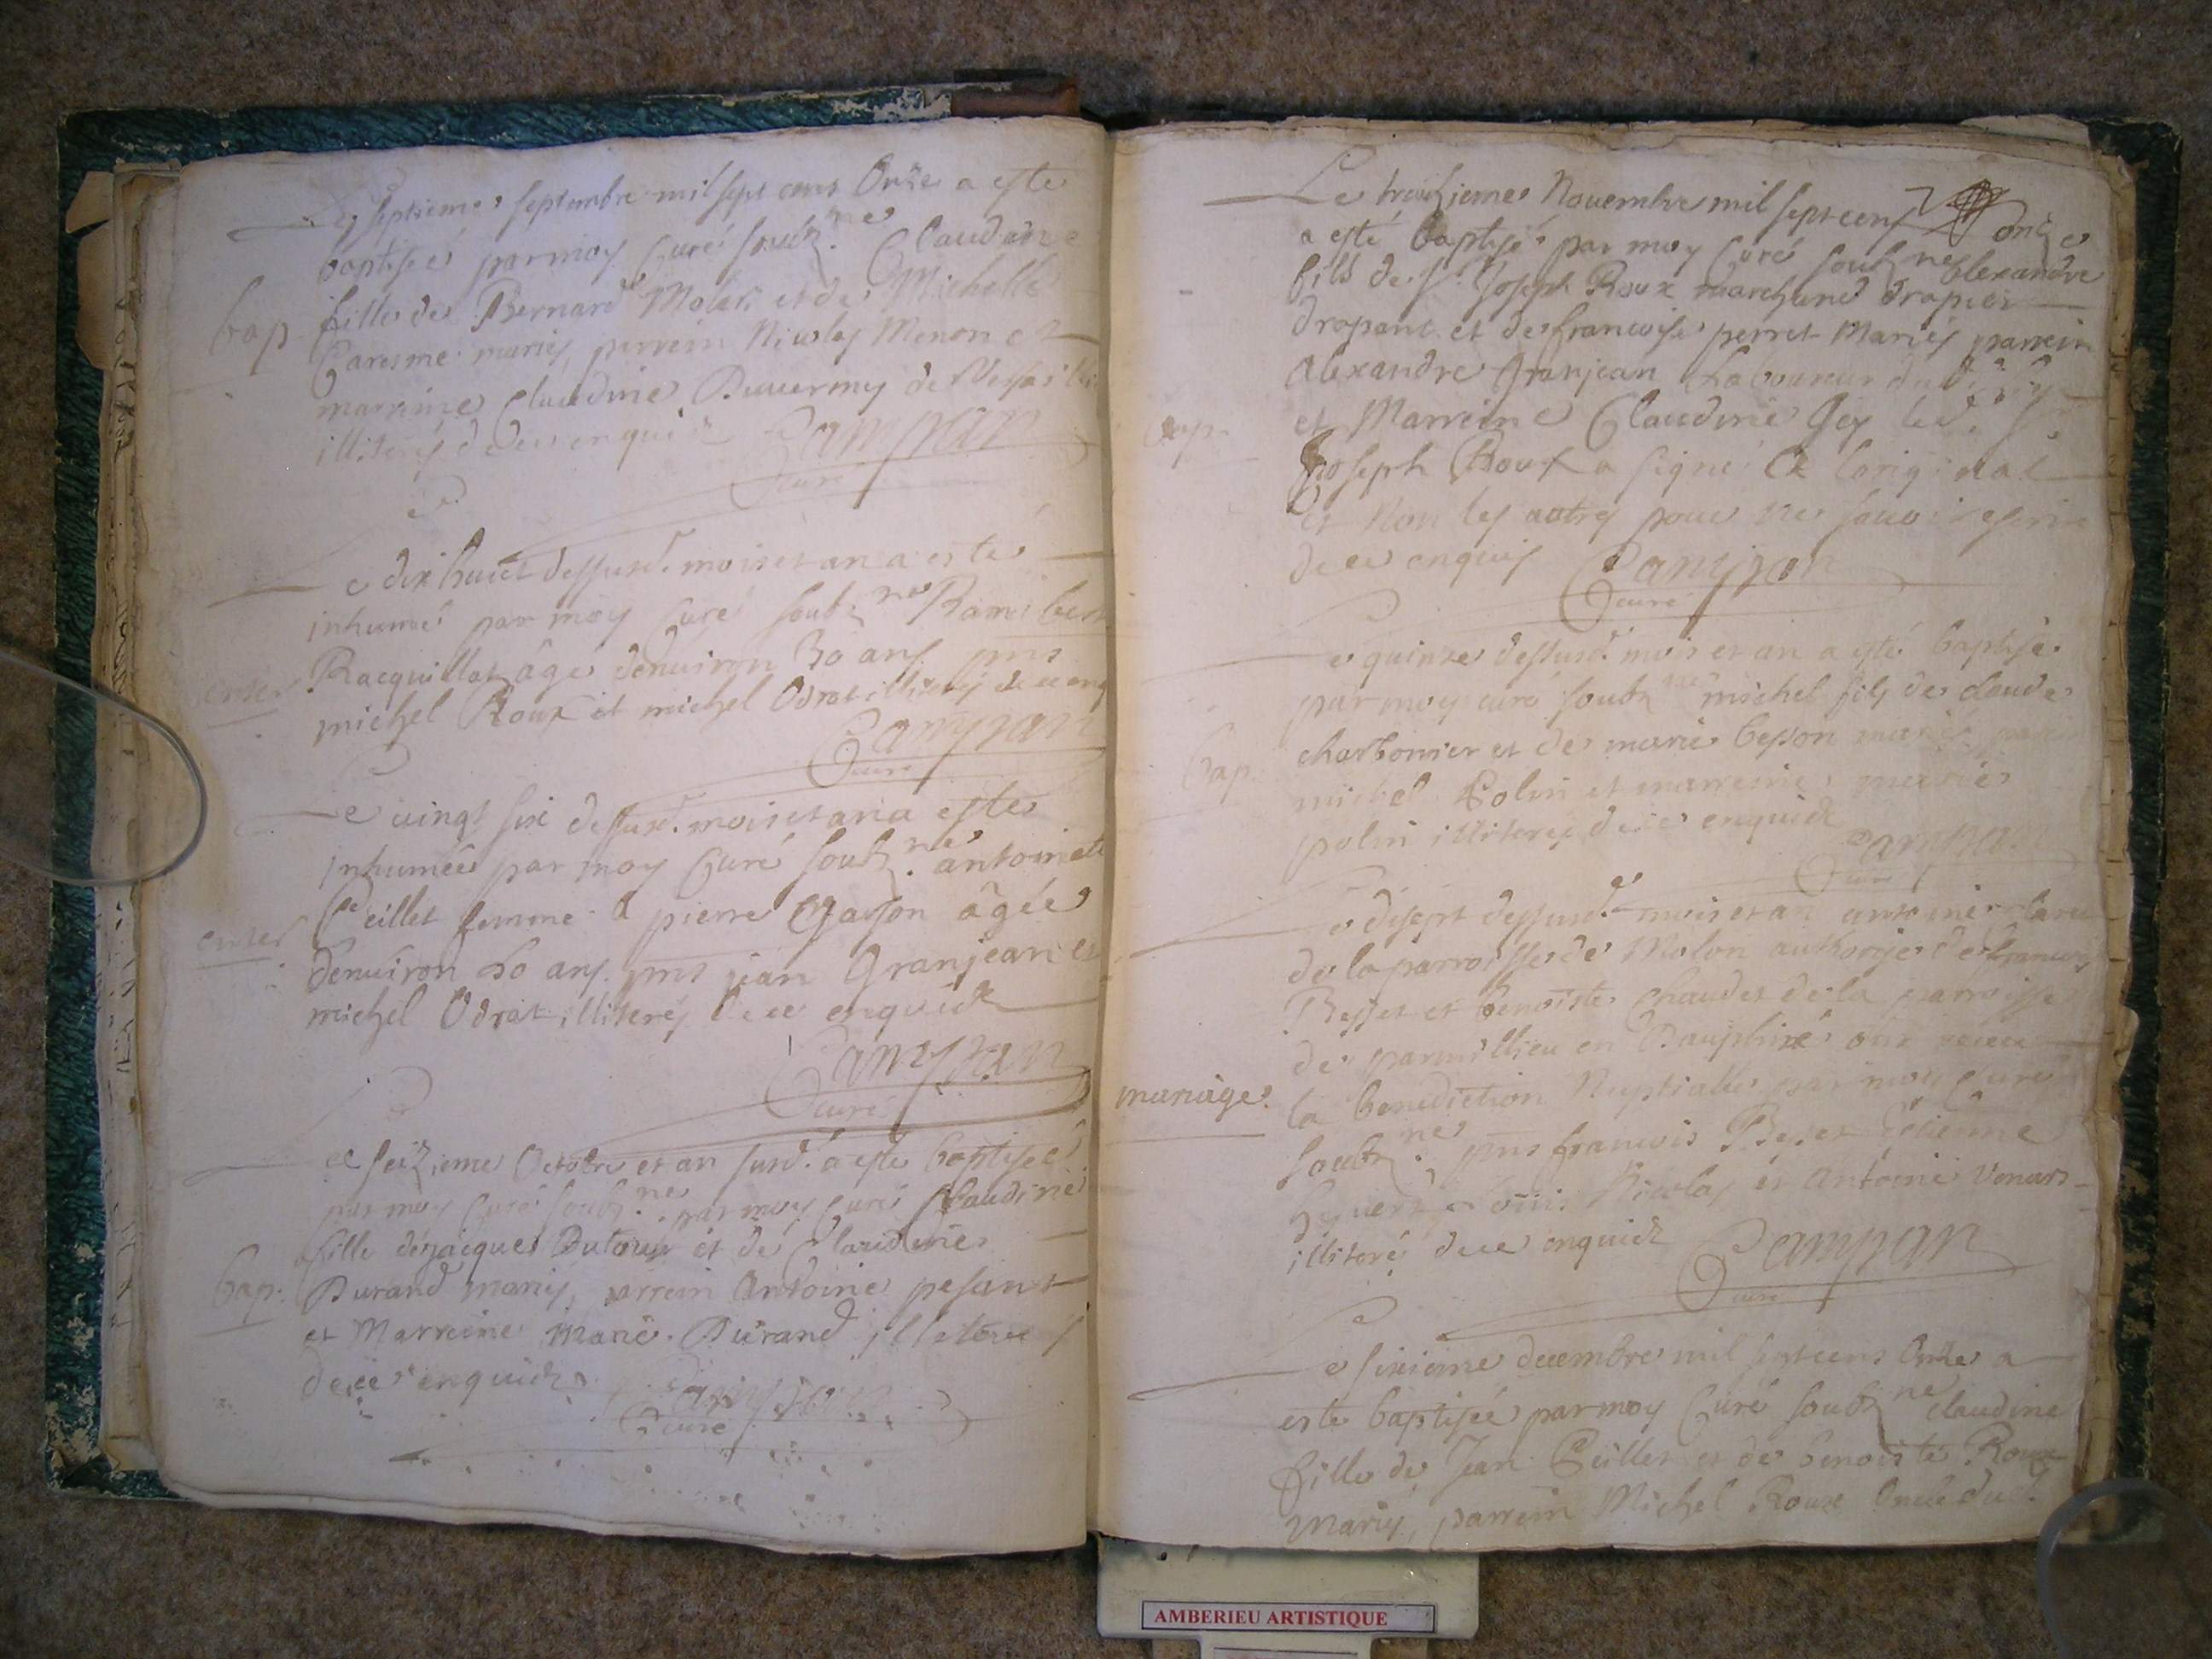 Le septiemes septembre mil sept cens Onze a este
baptiseé par moy Curé soubz.ne Claudine
bap
fille de Bernard Moler et de Michelle
Caresme mariés, parrein Nicolas Menon et
marreine Claudine Duvermy de
illiterés de ce enquis Campan
Curé
Le dix huict dessusd. mois et an a esté
inhumé par moy Curé soubz.ne
enter
Racquillat âgé denviron 30 ans pns
michel Roux et michel Odrat illiterés de ce enq
Campan
Curé
Le vingt six dessusd. mois et an a esté
inhumeé par moy Curé soubz.ne antoinete
enter
Peillet femme a pierre Garson âgée
denviron 40 ans. pns jean Granjean et
michel Odrat illiterés de ce enquick
Campan
Curé
Le seizieme Octobre et an susd. a este baptiseé
par moy Curé soubz.ne par moy Curé Claudine
fille de jacques Dutour et de Claudine
bap.
Durand mariés, parrein Antoine pesant
et Marreine Marie Durand illiterés
de ce enquick
Campan
Curé
Le treizieme Novembre mil sept cens onze
a esté baptisé par moy Curé soubz.ne Alexandre
fils de Sr. Joseph Roux marchand drapier
drapant et de francoise perret Mariés parrein
Alexandre Granjean Laboureur
bap.
et Marreine Claudine Gey led. Sr.
Joseph Roux a signé a loriginal
et Non les autres pour ne savoir escrire
de ce enquis Campan
Curé
Le quinze dessusd. mois et an a esté baptisé
par moy curé soubz.ne michel fils de claude
bap.
charbonnier et de marie besson mariés
michel Polin et marreine marie
polin illiterés de ce enquick
Campan
Curé
Le disept dessusd. mois et an antoine
de la parroisse de Molon authorisé de francois
Besset et benoiste Chaudet de la parroisse
de parmillieu en Dauphiné ont receu
mariage.
la benediction Nuptialle par moy Curé
soubz.ne pns francois Besset Etienne
Nicolas et Antoine Venard
illiteré de ce enquick
Campan
Curé
Le sixieme decembre mil sept cens Onze a
este baptisée par moy Curé soubz.ne claudine
fille de Jean Peillet et de benoiste Roux
mariés, parrein Michel Roux Oncle dud.
AMBERIEU ARTISTIQUE